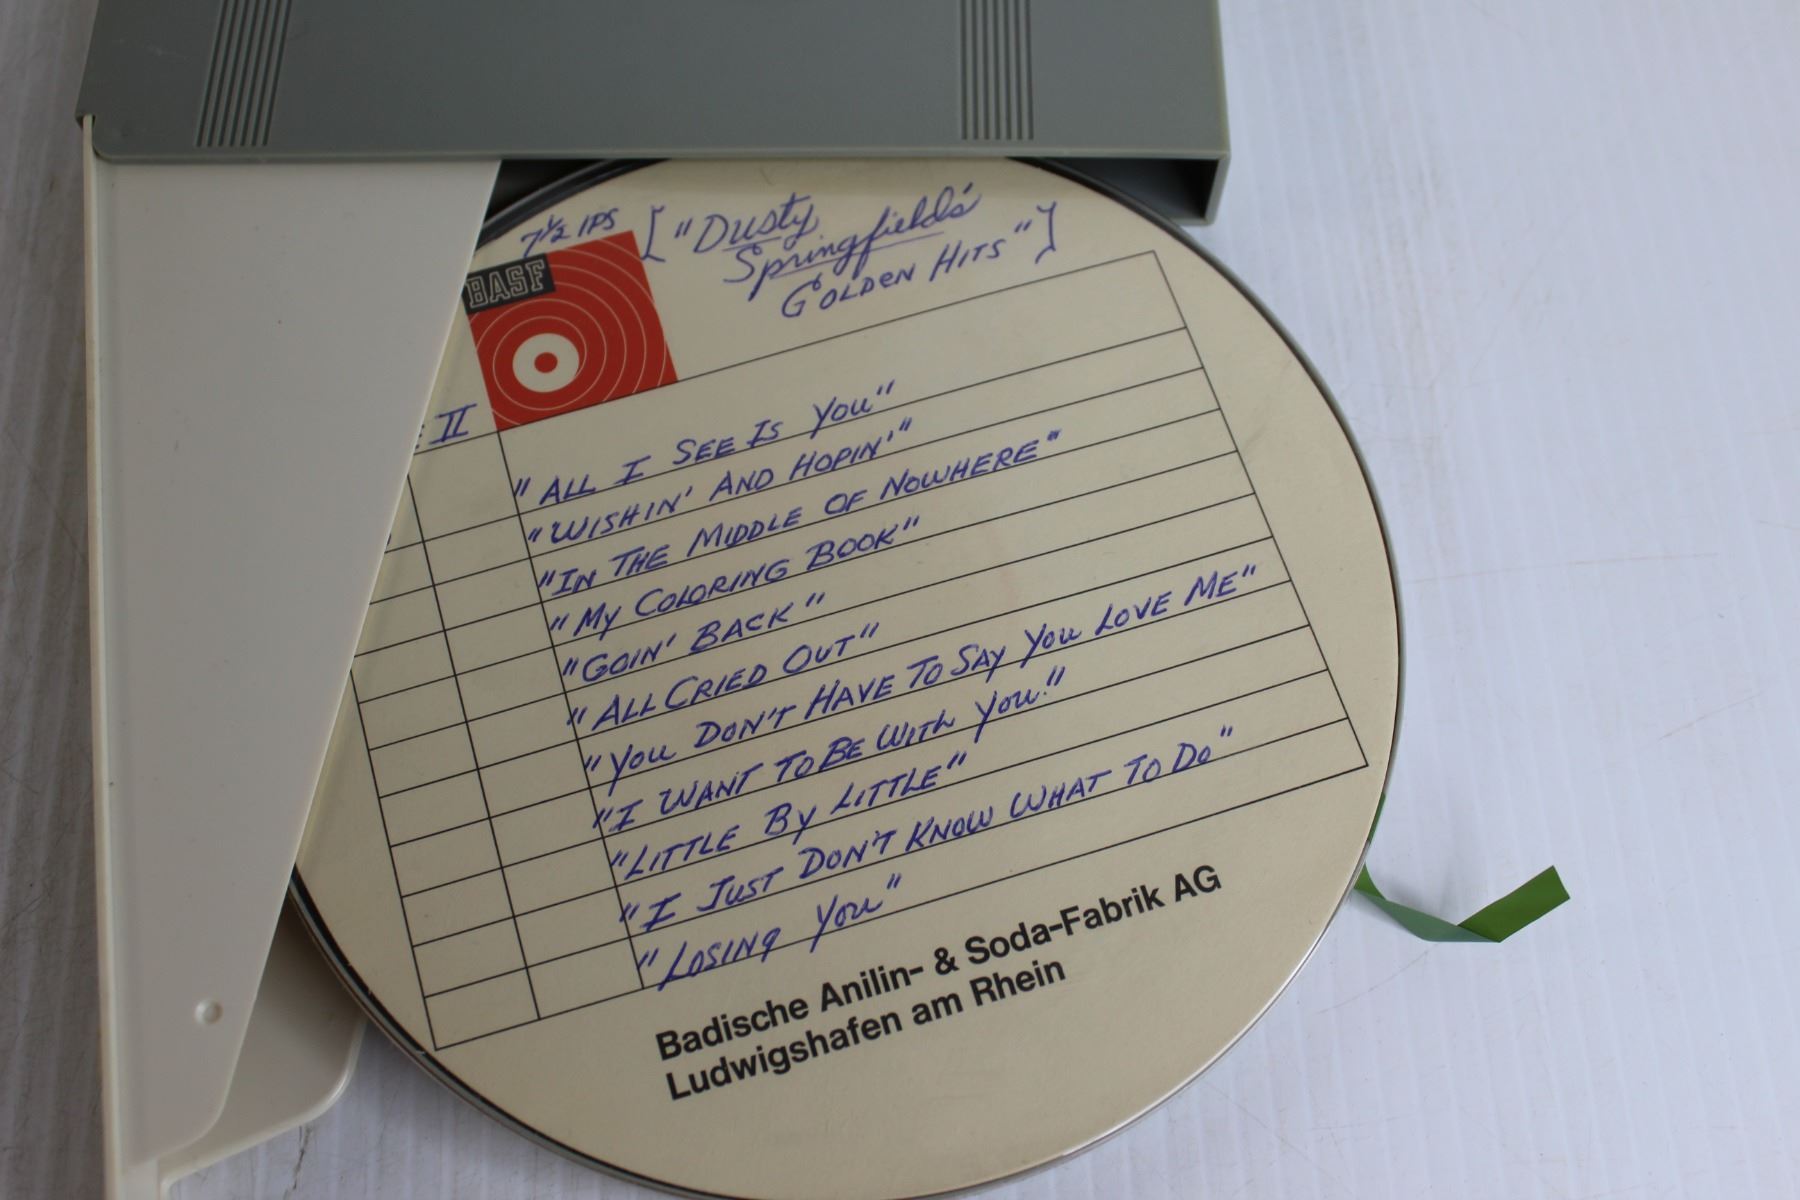 7½ IPS
["Dusty
Springfield's
GOLDEN HITS"]
BASF
II
"ALL I SEE IS YOU"
"WISHIN' AND HOPIN'"
"IN THE MIDDLE OF NOWHERE"
"MY COLORING BOOK"
"GOIN' BACK"
"ALL CRIED OUT"
"YOU DON'T HAVE TO SAY YOU LOVE ME"
"I WANT TO BE WITH YOU."
"LITTLE BY LITTLE"
"I JUST DON'T KNOW WHAT TO DO"
"LOSING YOU"
Badische Anilin- & Soda-Fabrik AG
Ludwigshafen am Rhein